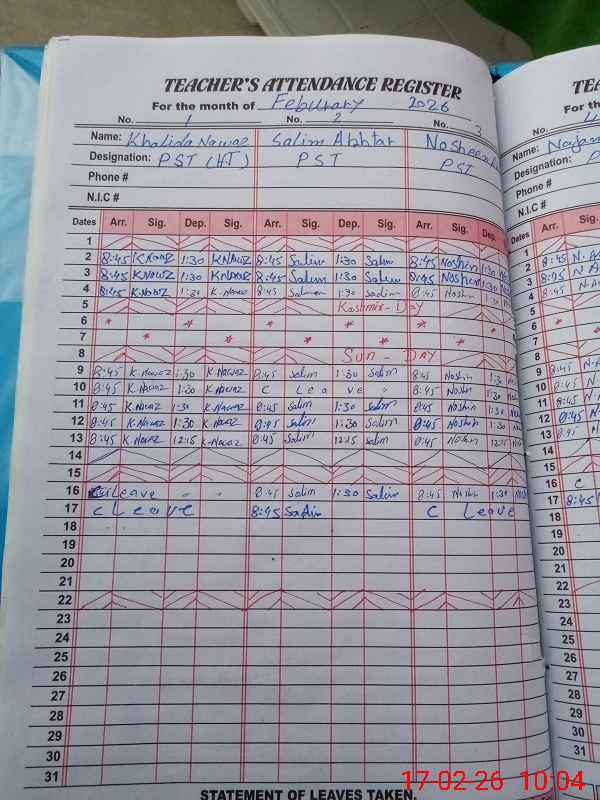 TEACHER'S ATTENDANCE REGISTER
For the month of Feburary 2026
No. 1 No. 2 No. 3
Name: Khalida Nawaz Salim Akhtar Nosheen
Designation: PST (H.T) PST PST
Phone #
N.I.C #
Dates Arr. Sig. Dep. Sig. Arr. Sig. Dep. Sig. Arr. Sig. Dep.
1
2 8:45 K Nawaz 1:30 K Nawaz 8:45 Salim 1:30 Salim 8:45 Noshin 1:30
3 8:45 K Nawaz 1:30 K Nawaz 8:45 Salim 1:30 Salim 8:45 Noshin 1:30
4 8:45 K Nawaz 1:30 K. Nawaz 8:45 Salim 1:30 Salim 8:45 Noshin 1:30
5 Kashmir - Day
6 * * * * *
7 * * * * *
8 Sun - DAY
9 8:45 K. Nawaz 1:30 K Nawaz 8:45 Salim 1:30 Salim 8:45 Noshin 1:30
10 8:45 K. Nawaz 1:30 K Nawaz C Leave " 8:45 Noshin 1:30
11 8:45 K. Nawaz 1:30 K. Nawaz 8:45 Salim 1:30 Salim 8:45 Noshin 1:30
12 8:45 K. Nawaz 1:30 K Nawaz 8:45 Salim 1:30 Salim 8:45 Noshin 1:30
13 8:45 K. Nawaz 12:15 K. Nawaz 8:45 Salim 12:15 Salim 8:45 Noshin 12:15
14
15
16 Leave " " 8:45 Salim 1:30 Salim 8:45 Noshin 1:30
17 C Leave 8:45 Salim C Leave
18
19
20
21
22
23
24
25
26
27
28
29
30
31
STATEMENT OF LEAVES TAKEN.
For th
No. 4
Name:
Designation: P
Phone #
N.I.C #
Dates Arr. Sig.
1
2 8:45 N.A
3 8:45 N.A
4 8:45 N.A
5
6 *
7
8
9 8:45 N
10 8:45 N.
11 8:45 N
12 8:45 N
13 8:45 N
14
15
16 C
17 8:45
18
19
20
21
22
23
24
25
26
27
28
29
30
31
17-02-26 10:04